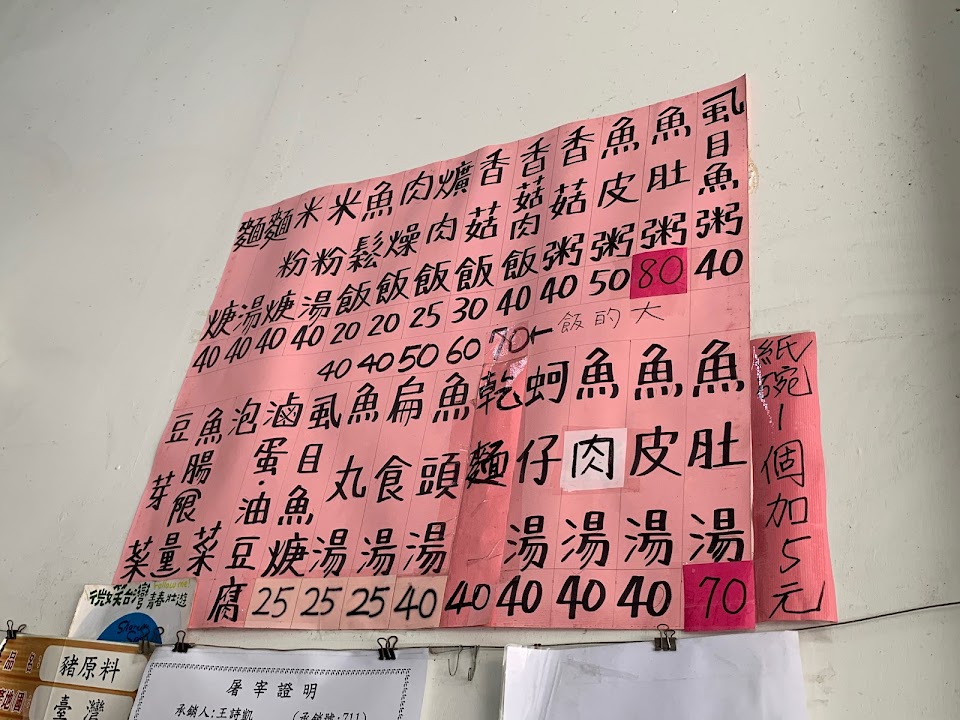 虱目魚粥 40
魚肚粥 80
魚皮粥 50
香菇粥 40
香菇肉飯 40
香菇飯 30
爌肉飯 25
肉燥飯 20
魚鬆飯 20
米粉湯 40
米粉焿 40
麵湯 40
麵焿 40
40 40 50 60 70←飯的大
魚肚湯 70
魚皮湯 40
魚肉湯 40
蚵仔湯 40
乾麵 40
魚頭湯 40
扁食湯 25
魚丸湯 25
虱目魚焿 25
滷蛋·油豆腐
泡菜
魚腸限量
豆芽菜
紙碗1個加5元
Follow me
微笑台灣 青春壯遊
品名
豬原料
產地國
臺灣
屠宰證明
承銷人:王詩凱 (承銷號:711)